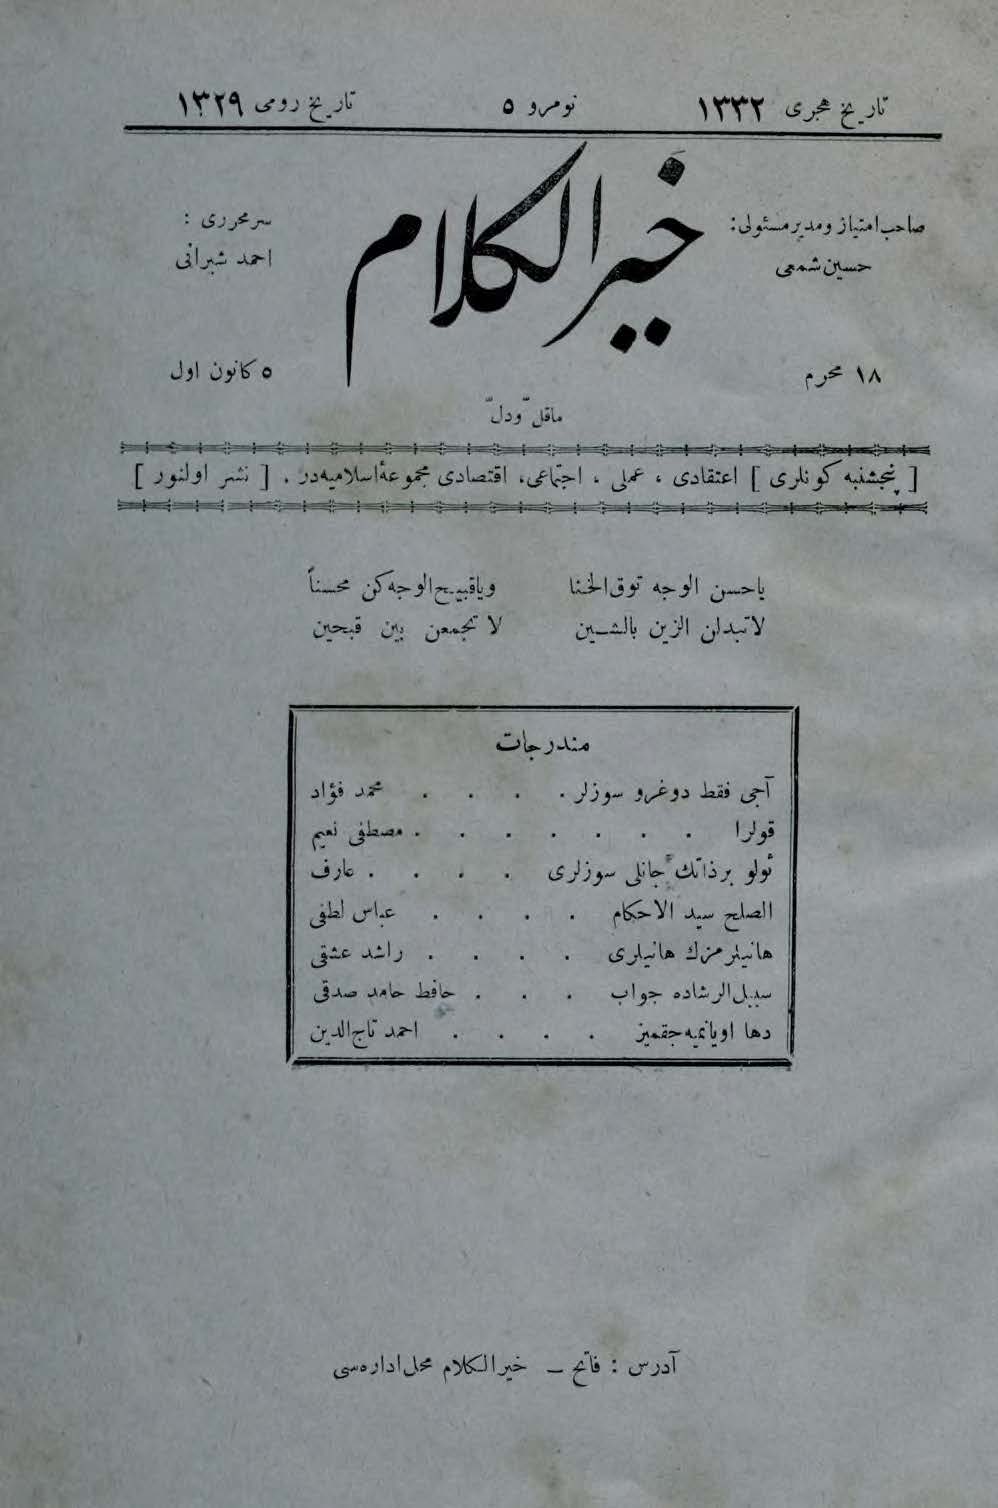 تاريخ هجرى ١٣٣٢ نومرو ٥ تاريخ رومى ١٣٢٩
خير الكلام
صاحب امتياز ومدير مسئولى:
حسين شمعى
سر محررى :
احمد شيرانى
١٨ محرم
٥ كانون اول
ماقلّ ودلّ
[ پنجشنبه كونلرى ] اعتقادى ، عملى ، اجتماعى، اقتصادى مجموعۀ اسلاميه در . [ نشر اولنور ]
ياحسن الوجه توق الخنا وياقبيح الوجه كن محسناً
لاتبدلن الزين بالشين لا تجمعن بين قبحين
مندرجات
آجى فقط دوغرو سوزلر . . . . محمد فؤاد
قولرا . . . . . . . مصطفى نعيم
ئولو برذاتك جانلى سوزلرى . . . . عارف
الصلح سيد الاحكام . . . . عباس لطفى
هانيلرمزك هانيلرى . . . . راشد عشقى
سبيل الرشاده جواب . . . حافظ حامد صدقى
دها اويانميه جقميز . . . . احمد تاج الدين
آدرس : فاتح – خير الكلام محل اداره سى